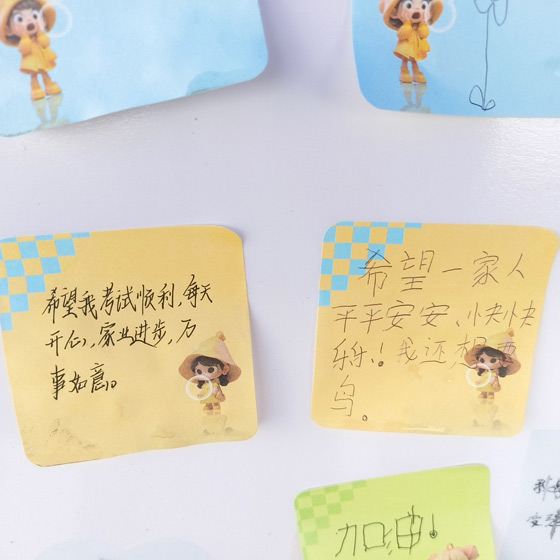 希望我考试顺利,每天
开心,家业进步,万
事如意。
希望一家人
平平安安、快快
乐乐!我还想要
鸟.
加油!